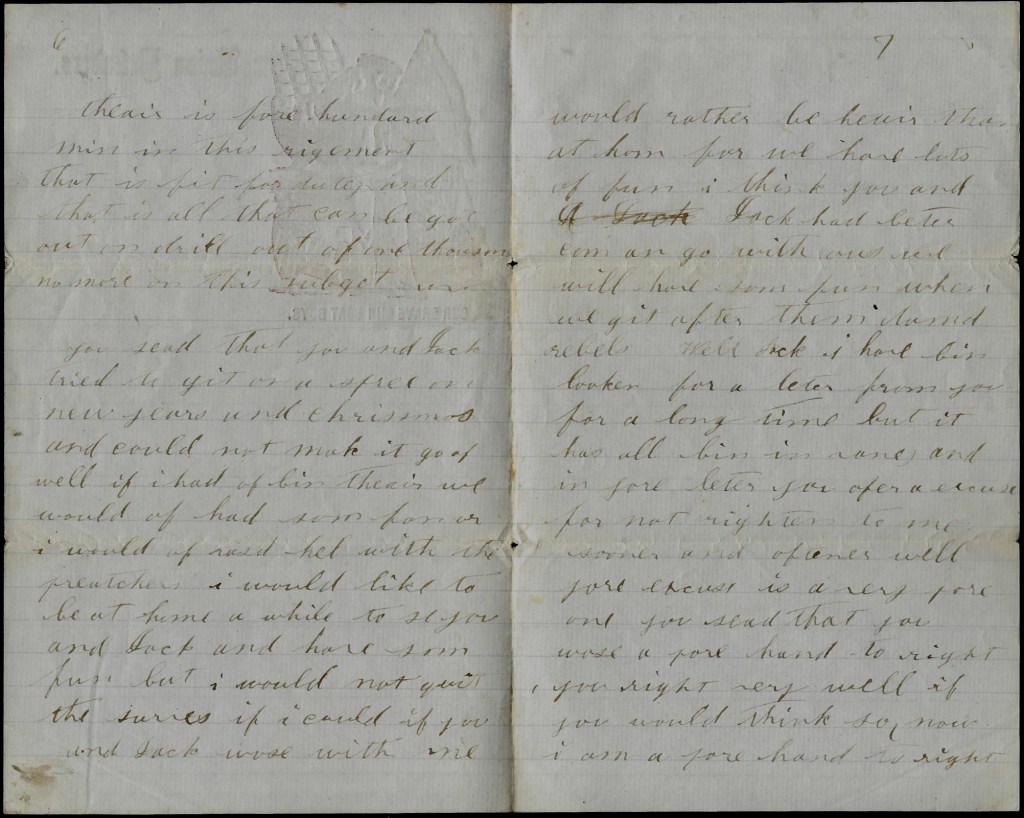 6
theair is fore hundard
min in this rigement
that is fit for dutey and
that is all that can be got
out on drill out of one thousan
no more on this subget
you sead that you and Jack
tried to git on a spree on
new years and chrismos
and could not mak it go of
well if i had of bin theair we
would of had som fon or
i would of rasd hel with the
preatchers i would like to
be at home a while to se you
and Jack and have som
fun but i would not quit
the surves if i could if you
and Jack wose with me
7
would rather be heair than
at hom for we have lots
of fun i think you and
Jack had beter
com an go with ous we
will have som fun when
we git after them damd
rebels Well Jack i have bin
looken for a leter from you
for a long time but it
has all bin in vane and
in yore leter you ofer a excuse
for not righten to me
sooner and ofener well
yore excuse is a very pore
one you sead that you
wose a pore hand to right
you right very well if
you would think so now
i am a pore hand to right